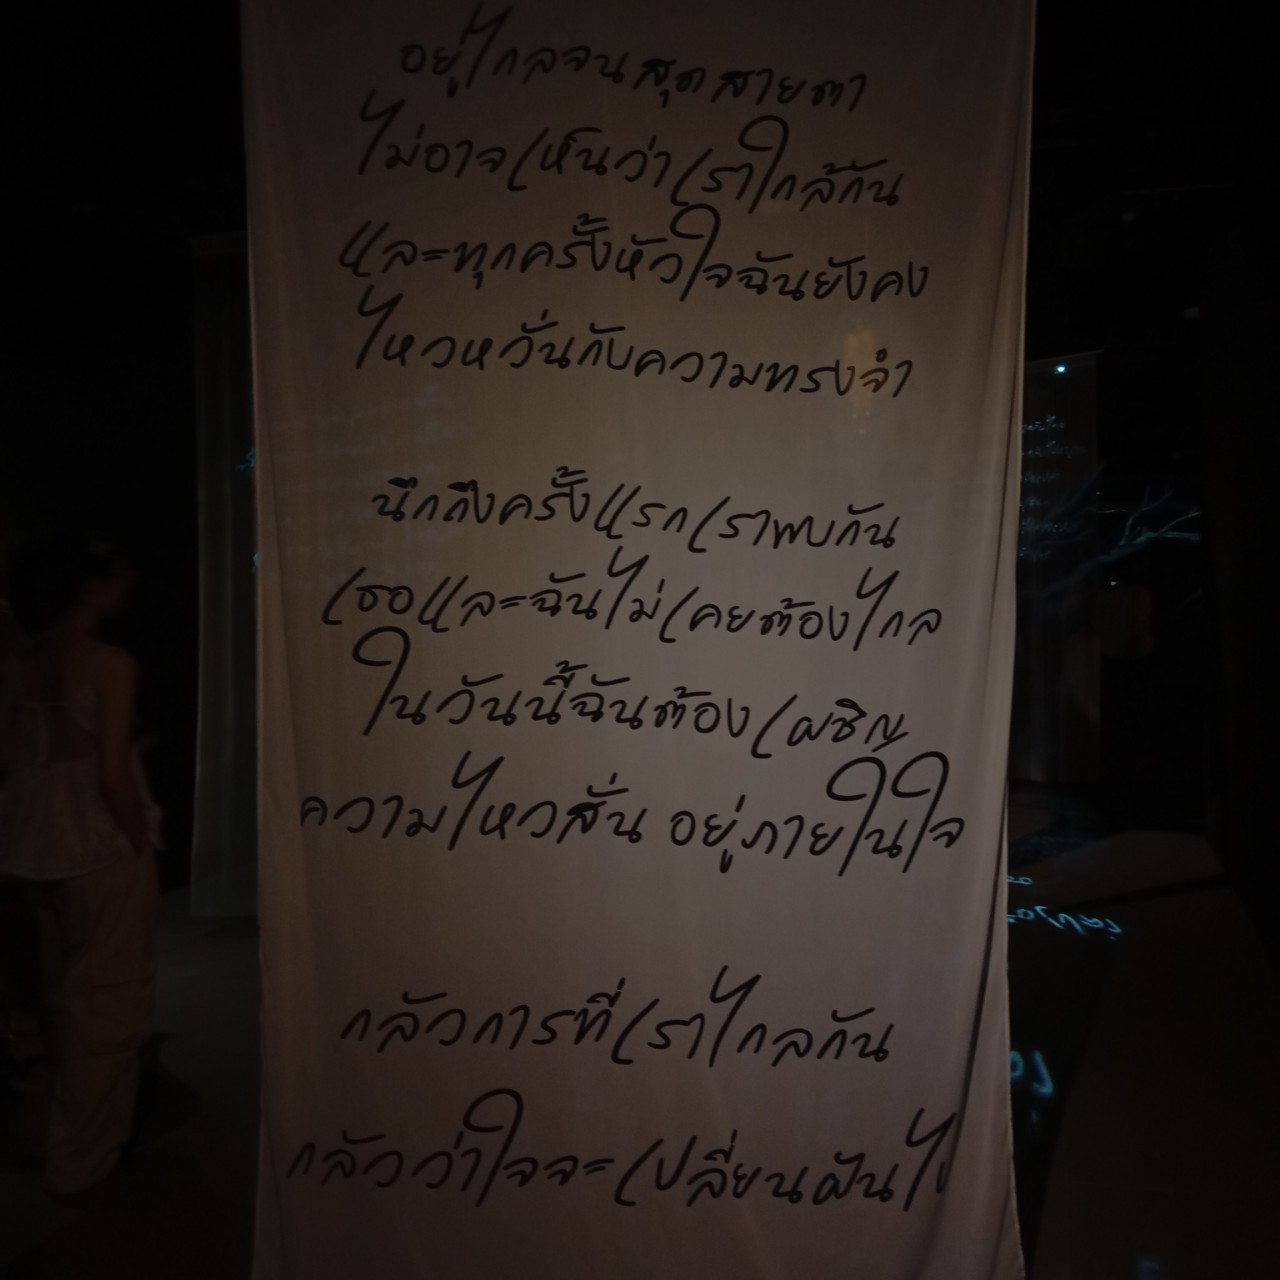 อยู่ไกลจนสุดสายตา
ไม่อาจเห็นว่าเราใกล้กัน
และทุกครั้งหัวใจฉันยังคง
ไหวหวั่นกับความทรงจำ
นึกถึงครั้งแรกเราพบกัน
เธอและฉันไม่เคยต้องไกล
ในวันนี้ฉันต้องเผชิญ
ความไหวสั่น อยู่ภายในใจ
กลัวการที่เราไกลกัน
กลัวว่าใจจะเปลี่ยนผันไป